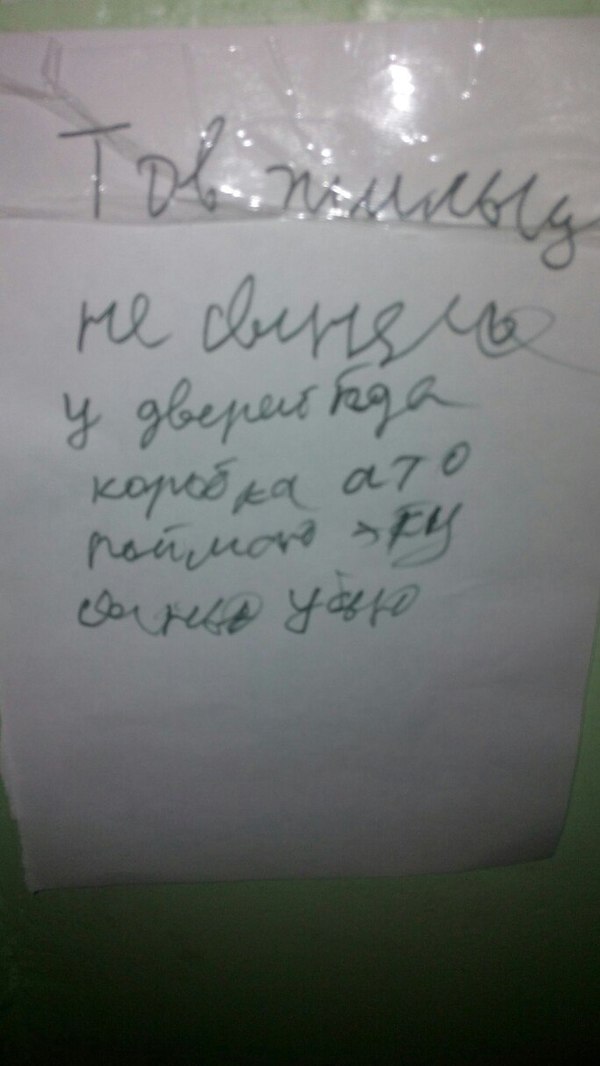 Тов жильцы
не
у дверей
коробка а то
поймаю эту
свинью убью